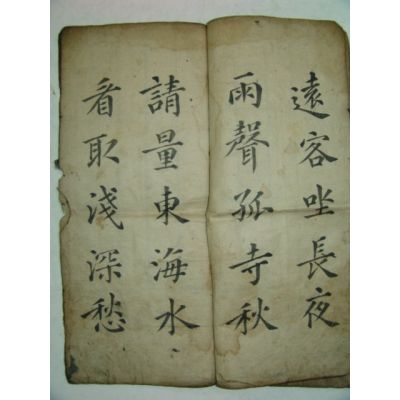 遠客坐長夜
雨聲孤寺秋
請量東海水
看取淺深愁